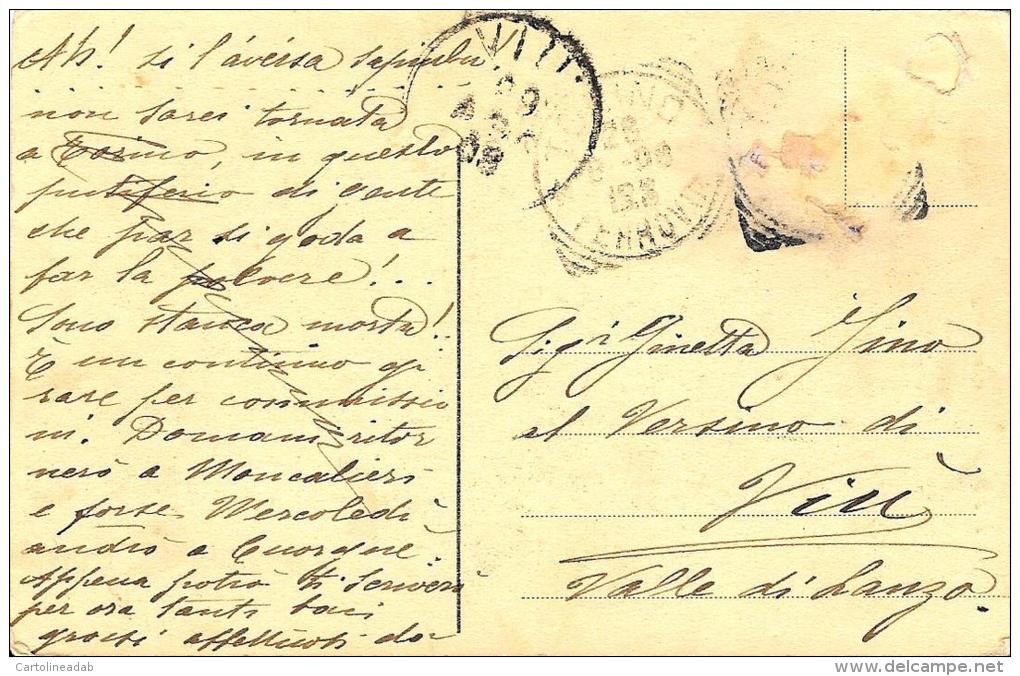 Ah! si l'avessi saputo,
non sarei tornata
a Torino in questo
putiferio di gente
che par si goda a
far la polvere!..
Sono stanca morta!!
È un continuo gi
rare per commissio
ni. Domani ritor
nerò a Moncalieri
e forse Mercoledì
andrò a Cuorgnè.
Appena potrò ti scriverò
per ora tanti baci
grossi affettuosi da
VIU
TORINO
FERROVIA
Sig.ra Ginetta Gino
al Versino di
Viù
Valle di Lanzo.
Cartolineadab
www.delcampe.net